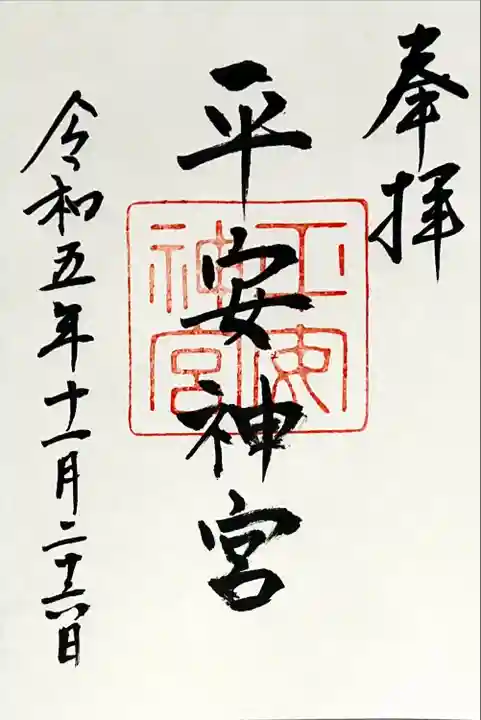 奉拝
平安神宮
平安
神宮
令和五年十一月二十六日